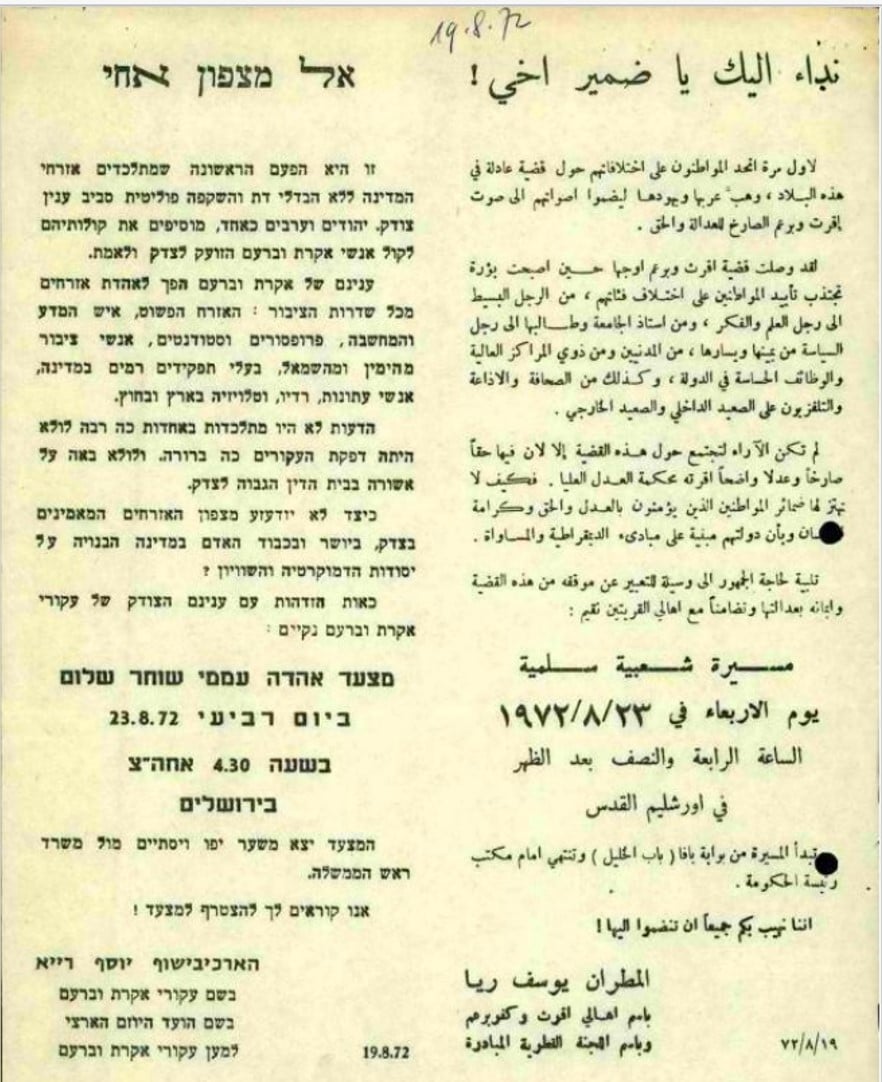 19.8.72
نداء اليك يا ضمير اخي !
لاول مرة اتحد المواطنون على اختلافاتهم حول قضية عادلة في
هذه البلاد ، وهب عربها ويهودها ليضموا اصواتهم الى صوت
إقرت وبرعم الصارخ للعدالة والحق .
لقد وصلت قضية اقرت وبرعم اوجها حين اصبحت بؤرة
تجتذب تأييد المواطنين على اختلاف فئاتهم ، من الرجل البسيط
الى رجل العلم والفكر ، ومن استاذ الجامعة وطالبها الى رجل
السياسة من يمينها ويسارها ، من المدنيين ومن ذوي المراكز العالية
والوظائف الحساسة في الدولة ، وكذلك من الصحافة والاذاعة
والتلفزيون على الصعيد الداخلي والصعيد الخارجي .
لم تكن الآراء لتجتمع حول هذه القضية إلا لان فيها حقاً
صارخاً وعدلا واضحاً اقرته محكمة العدل العليا . فكيف لا
تهتز لها ضمائر المواطنين الذين يؤمنون بالعدل والحق وكرامة
وبأن دولتهم مبنية على مبادىء الديمقراطية والمساواة .
تلبية لحاجة الجمهور الى وسيلة للتعبير عن موقفه من هذه القضية
وايمانه بعدالتها وتضامناً مع اهالي القريتين نقيم :
مسيرة شعبية سلمية
يوم الاربعاء في ١٩٧٢/٨/٢٣
الساعة الرابعة والنصف بعد الظهر
في اورشليم القدس
تبدأ المسيرة من بوابة يافا ( باب الخليل ) وتنتهي امام مكتب
رئيسة الحكومة .
اننا نهيب بكم جميعاً ان تنضموا اليها !
المطران يوسف ريا
باسم اهالي اقرت وكفربرعم
وباسم اللجنة القطرية المبادرة
٧٢/٨/١٩
אל מצפון אחי
זו היא הפעם הראשונה שמתלכדים אזרחי
המדינה ללא הבדלי דת והשקפה פוליטית סביב ענין
צודק. יהודים וערבים כאחד, מוסיפים את קולותיהם
לקול אנשי אקרת וברעם הזועק לצדק ולאמת.
ענינם של אקרת וברעם הפך לאהדת אזרחים
מכל שדרות הציבור : האזרח הפשוט, איש המדע
והמחשבה, פרופסורים וסטודנטים, אנשי ציבור
מהימין ומהשמאל, בעלי תפקידים רמים במדינה,
אנשי עתונות, רדיו, וטלויזיה בארץ ובחוץ.
הדעות לא היו מתלכדות באחדות כה רבה לולא
היתה דפקת העקורים כה ברורה. ולולא באה על
אשורה בבית הדין הגבוה לצדק.
כיצד לא יזדעזע מצפון האזרחים המאמינים
בצדק, ביושר ובכבוד האדם במדינה הבנויה על
יסודות הדמוקרטיה והשוויון ?
כאות הזדהות עם ענינם הצודק של עקורי
אקרת וברעם נקיים :
מצעד אהדה עממי שוחר שלום
ביום רביעי 23.8.72
בשעה 4.30 אחה״צ
בירושלים
המצעד יצא משער יפו ויסתיים מול משרד
ראש הממשלה.
אנו קוראים לך להצטרף למצעד !
הארכיבישוף יוסף רייא
בשם עקורי אקרת וברעם
בשם הועד היוזם הארצי
למען עקורי אקרת וברעם
19.8.72